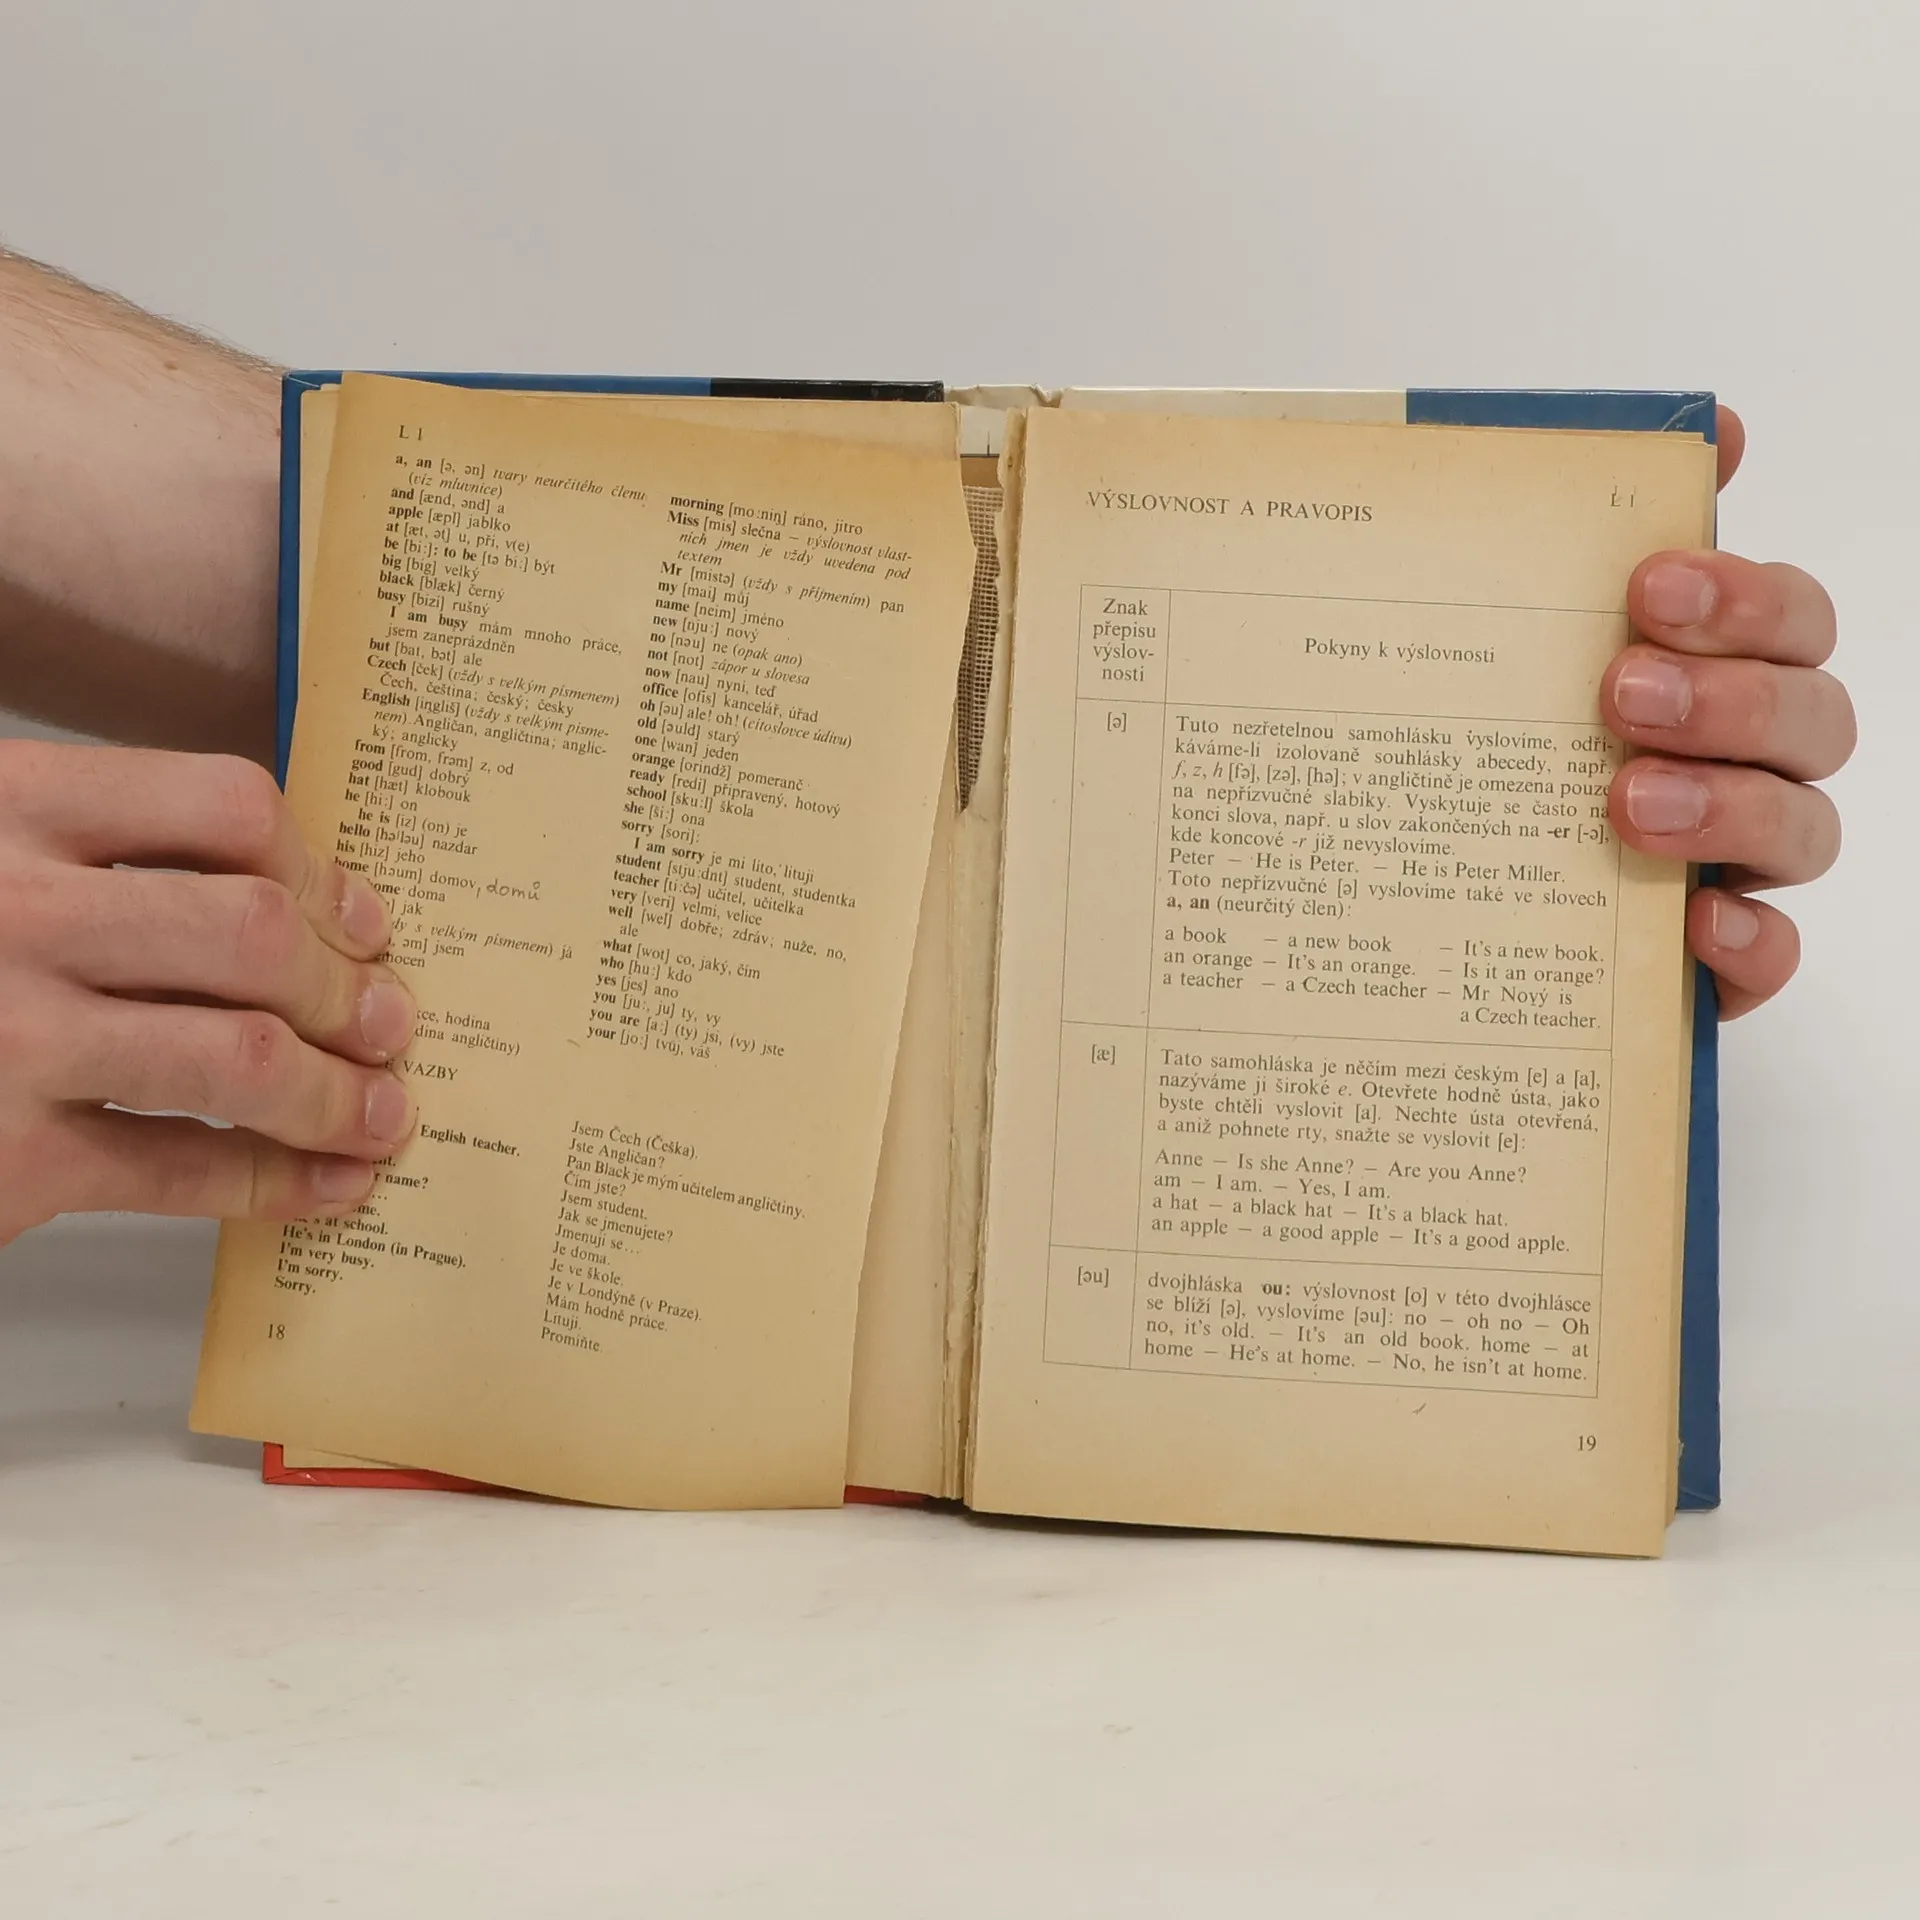 L 1
a, an [ə, ən] tvary neurčitého členu
(viz mluvnice)
and [ænd, ənd] a
apple [æpl] jablko
at [æt, ət] u, při, v(e)
be [bi:]; to be [tə bi:] být
big [big] velký
black [blæk] černý
busy [bizi] rušný
I am busy mám mnoho práce,
jsem zaneprázdněn
but [bat, bət] ale
Czech [ček] (vždy s velkým písmenem)
Čech, čeština; český; česky
English [iŋgliš] (vždy s velkým písme-
nem) Angličan, angličtina; anglic-
ký; anglicky
from [from, frəm] z, od
good [gud] dobrý
hat [hæt] klobouk
he [hi:] on
he is [iz] (on) je
hello [həˈləu] nazdar
his [hiz] jeho
home [həum] domov, domů
home doma
jak
s velkým písmenem) já
əm] jsem
hodina
dina angličtiny)
morning [mo:niŋ] ráno, jitro
Miss [mis] slečna – výslovnost vlast-
ních jmen je vždy uvedena pod
textem
Mr [mistə] (vždy s příjmením) pan
my [mai] můj
name [neim] jméno
new [nju:] nový
no [nəu] ne (opak ano)
not [not] zápor u slovesa
now [nau] nyní, teď
office [ofis] kancelář, úřad
oh [əu] ale! oh! (citoslovce údivu)
old [əuld] starý
one [wan] jeden
orange [orindž] pomeranč
ready [redi] připravený, hotový
school [sku:l] škola
she [ši:] ona
sorry [sori]:
I am sorry je mi líto, lituji
student [stju:dnt] student, studentka
teacher [ti:čə] učitel, učitelka
very [veri] velmi, velice
well [wel] dobře; zdráv; nuže, no,
ale
what [wot] co, jaký, čím
who [hu:] kdo
yes [jes] ano
you [ju:, ju] ty, vy
you are [a:] (ty) jsi, (vy) jste
your [jo:] tvůj, váš
VAZBY
English teacher.
name?
at school.
He's in London (in Prague).
I'm very busy.
I'm sorry.
Sorry.
Jsem Čech (Češka).
Jste Angličan?
Pan Black je mým učitelem angličtiny.
Čím jste?
Jsem student.
Jak se jmenujete?
Jmenuji se...
Je doma.
Je ve škole.
Je v Londýně (v Praze).
Mám hodně práce.
Lituji.
Promiňte.
18
L 1
VÝSLOVNOST A PRAVOPIS
Znak
přepisu
výslov-
nosti
Pokyny k výslovnosti
[ə]
Tuto nezřetelnou samohlásku vyslovíme, odří-
káváme-li izolovaně souhlásky abecedy, např.
f, z, h [fə], [zə], [hə]; v angličtině je omezena pouze
na nepřízvučné slabiky. Vyskytuje se často na
konci slova, např. u slov zakončených na -er [-ə],
kde koncové -r již nevyslovíme.
Peter – He is Peter. – He is Peter Miller.
Toto nepřízvučné [ə] vyslovíme také ve slovech
a, an (neurčitý člen):
a book – a new book – It's a new book.
an orange – It's an orange. – Is it an orange?
a teacher – a Czech teacher – Mr Nový is
a Czech teacher.
[æ]
Tato samohláska je něčím mezi českým [e] a [a],
nazýváme ji široké e. Otevřete hodně ústa, jako
byste chtěli vyslovit [a]. Nechte ústa otevřená,
a aniž pohnete rty, snažte se vyslovit [e]:
Anne – Is she Anne? – Are you Anne?
am – I am. – Yes, I am.
a hat – a black hat – It's a black hat.
an apple – a good apple – It's a good apple.
[əu]
dvojhláska ou: výslovnost [o] v této dvojhlásce
se blíží [ə], vyslovíme [əu]: no – oh no – Oh
no, it's old. – It's an old book. home – at
home – He's at home. – No, he isn't at home.
19